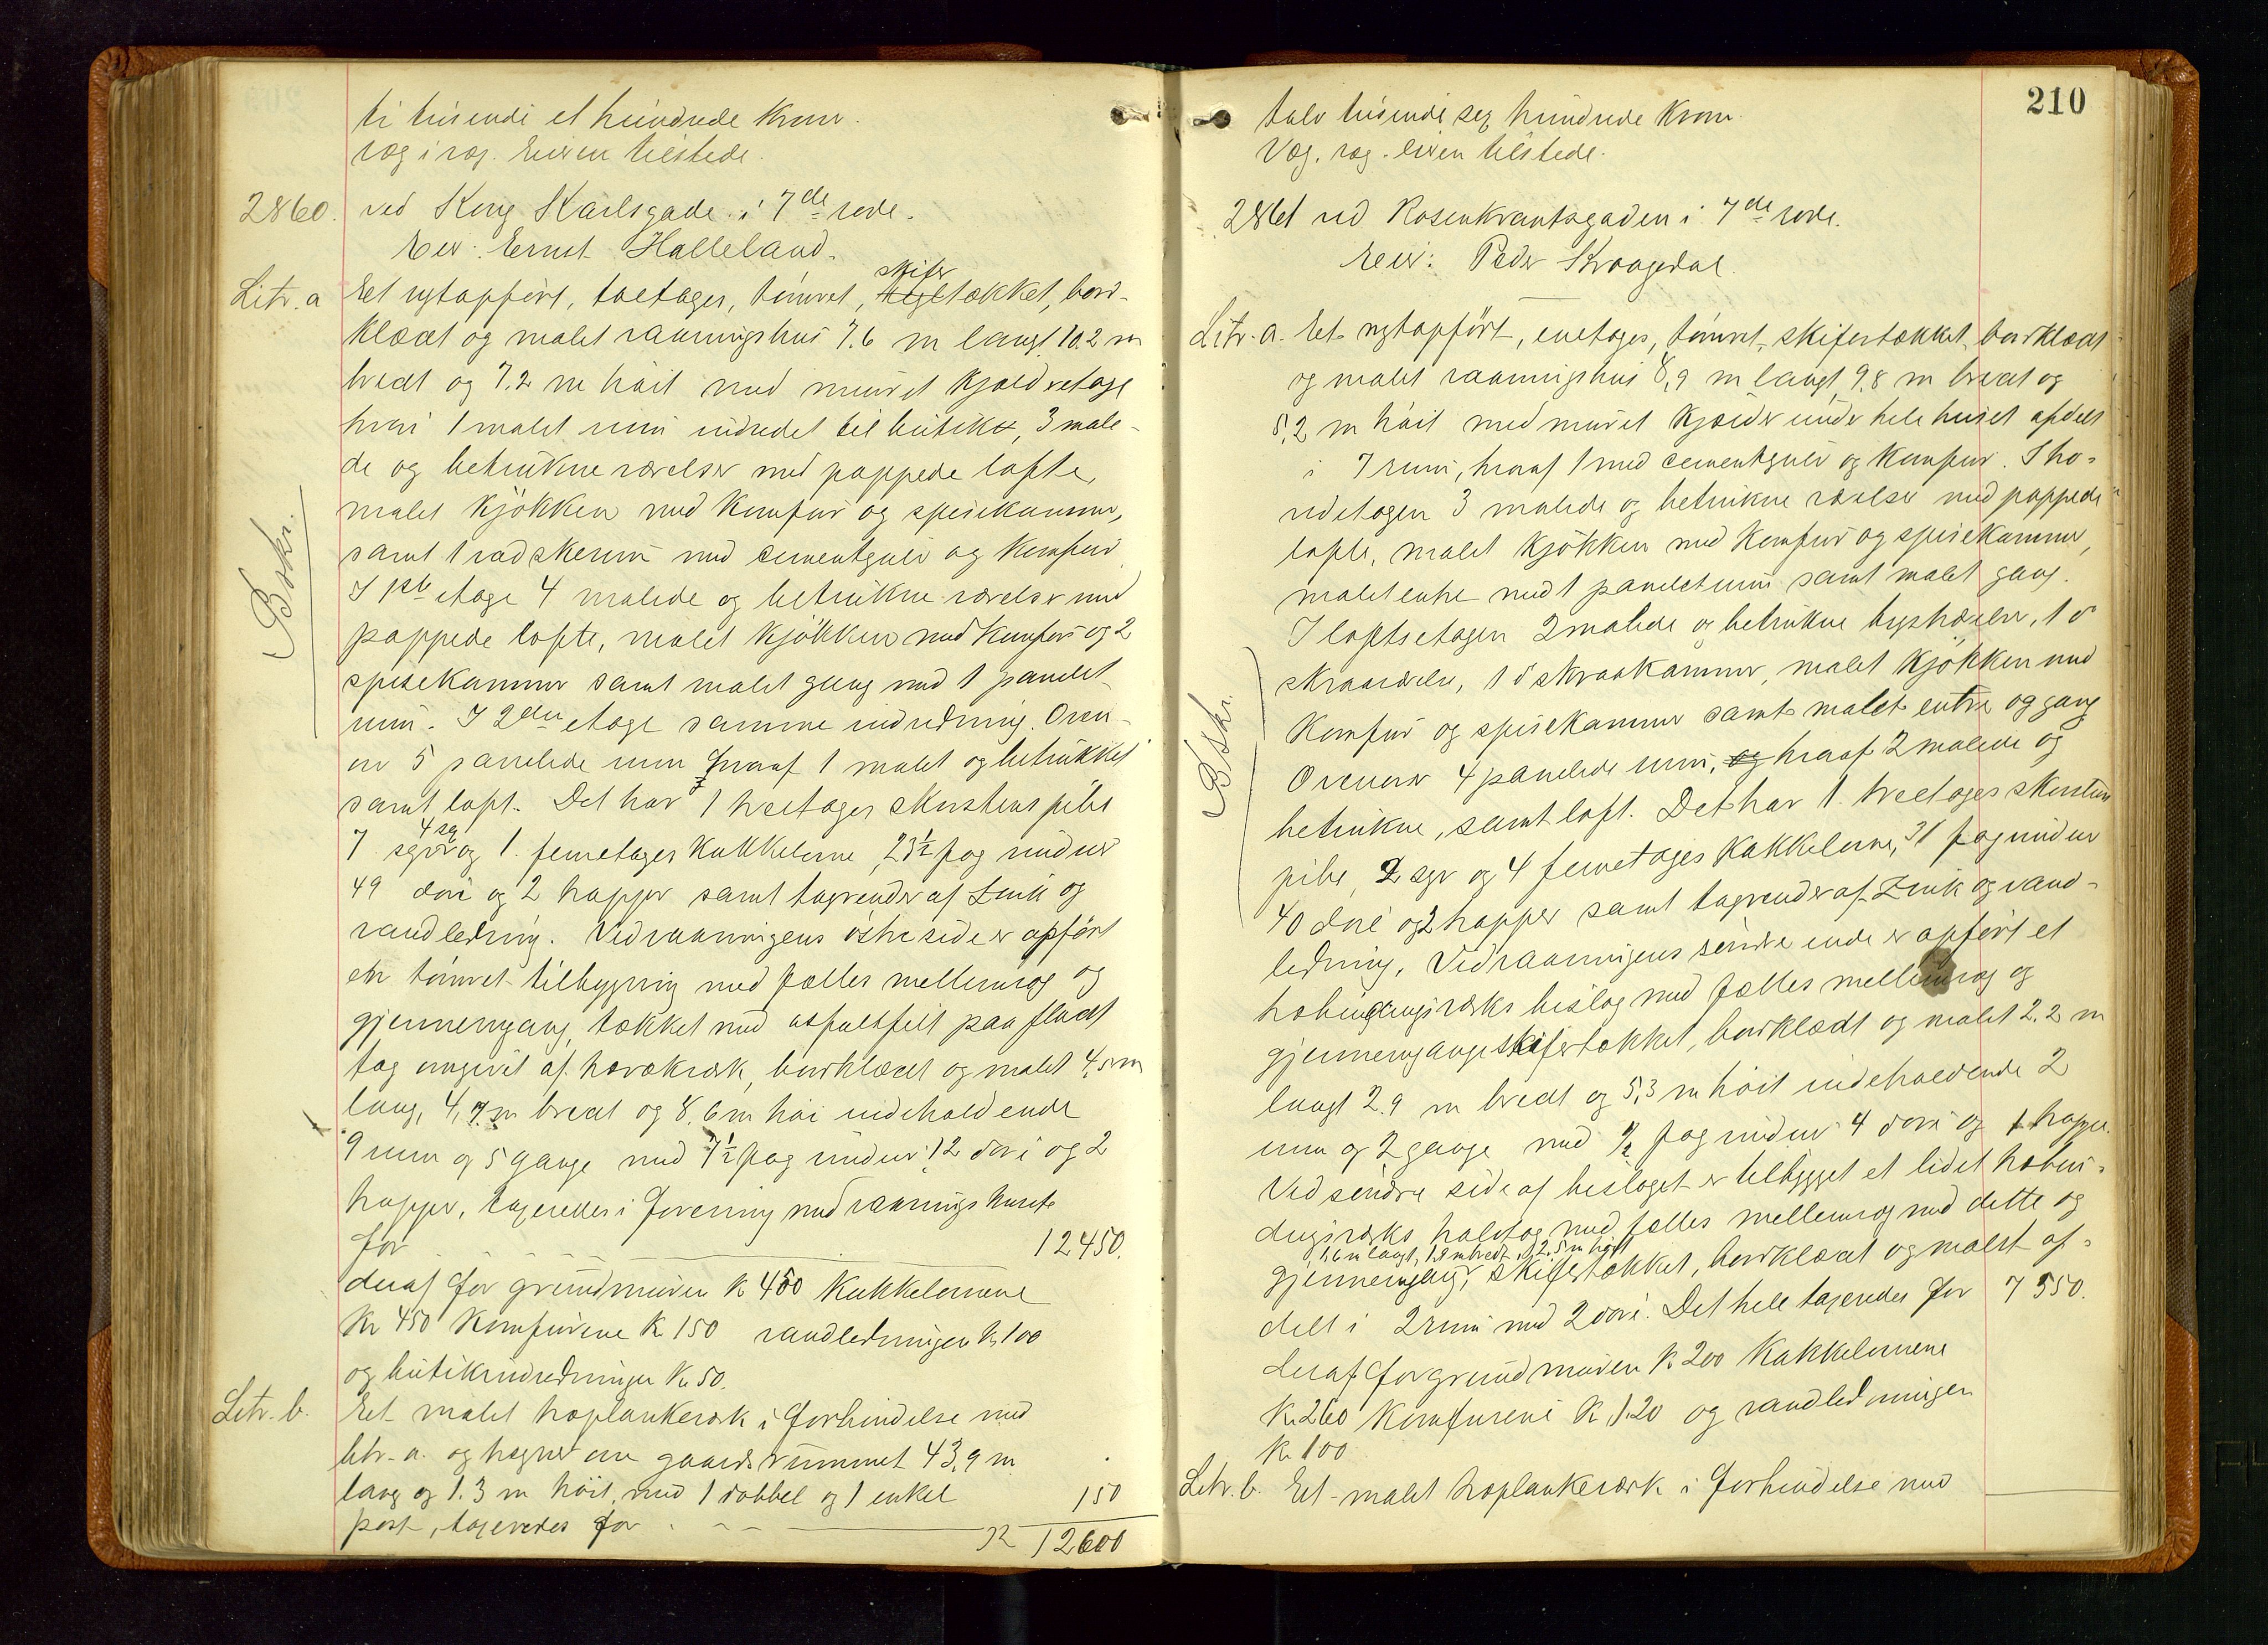 ti tusende et hundrede Kroner.
Væg i væg. Eieren tilstede.
2860. ved Kong Karlsgade i 7de rode.
Eier: Ernst Halleland.
Litr. a Et nyt opført, toetages, tømret, skifer tegltækket, bord-
klædt og malet vaaningshus 7.6 m langt 10.2 m
bredt og 7.2 m høit med muret kjælderetage
hvori 1 malet rum indredet til butikk, 3 male-
de og betrukne værelser med pappede lofte,
malet kjøkken med Komfur og spisekammer,
samt 1 vadskerum med cementgulv og Komfur
I 1ste etage 4 malede og betrukne værelser med
pappede lofte, malet kjøkken med Komfur og 2
spisekammer samt malet gang med 1 panelet
rum. I 2den etage samme indredning. Oven-
er 5 panelede rum hvoraf 1 malet og betrukket
samt loft. Det har 1 treetages skorstenspibe
7 4 sgr og 1. femetages Kakkelovne, 23½ fag vinduer
49 døre og 2 trapper samt tagrender af Zink og
vandledning. Ved vaaningens østre side er opført
en tømret tilbygning med fælles mellemvæg og
gjennemgang, tækket med asfaltfilt paa fladt
tag omgivet af rækværk, bordklædt og malet 4,5 m
lang, 4,7 m bredt og 8,6 m høi indeholdende
9 rum og 5 gange med 7½ fag vinduer 12 døre og 2
trapper, taxeredes i forening med vaaningshuset
for 12450.
deraf for grundmuren K 450 Kakkelovnene
Kr 450 Komfurene K 150 vandledningen K 100
og butikindredningen K 50.
Litr. b. Et malet træplankeværk i forbindelse med
litr. a. og hegner om gaardsrummet 43,9 m
lang og 1.3 m høit, med 1 dobbel og 1 enkel
port, taxeredes for 150
12600
Beskr.
210
tolv tusende sex hundrede Kroner.
Væg. væg. eieren tilstede.
2861 ved Rosenkrantsgaden i 7de rode.
Eier: Peder Kraagedal.
Litr. a. Et nyt opført, enetages, tømret, skifertækket, bordklædt
og malet vaaningshus 8,9 m langt 9,8 m bredt og
5,2 m høit med muret kjælder under hele huset afdelt
i 7 rum, hvoraf 1 med cementgulv og Komfur. I ho-
vedetagen 3 malede og betrukne værelser med pappede
lofte, malet kjøkken med Komfur og spisekammer,
malet entre med 1 panelet rum samt malet gang.
I loftsetagen 2 malede og betrukne kvistværelser, 1 d°
skraaværelse, 1 d° skraakammer, malet kjøkken med
Komfur og spisekammer samt malet entre og gang
Ovenover 4 panelede rum, og hvoraf 2 malede og
betrukne, samt loft. Det har 1. treetages skorstens
pibe, 2 sgr og 4 femetages Kakkelovne, 31 fag vinduer
40 døre og 2 trapper samt tagrender af Zink og vand-
ledning. Ved vaaningens søndre ende er opført et
træbindingsværks bislag med fælles mellemvæg og
gjennemgang skifertækket, bordklædt og malet 2.2 m
langt 2.9 m bredt og 5,3 m høit indeholdende 2
rum og 2 gange med ½ fag vinduer 4 døre og 1 trappe.
Ved søndre side af bislaget er tilbygget et lidet træbin-
dingsværks halvtag med fælles mellemvæg med dette og
1,6 m langt, 1,9 m bredt og 2,5 m høit
gjennemgang, skifertækket, bordklædt og malet af-
delt i 2 rum med 2 døre. Det hele taxeredes for 7550.
deraf for grundmuren K 200 Kakkelovnene
K 260 Komfurene K 120 og vandledningen
K 100
Litr. b. Et malet træplankeværk i forbindelse med
Beskr.